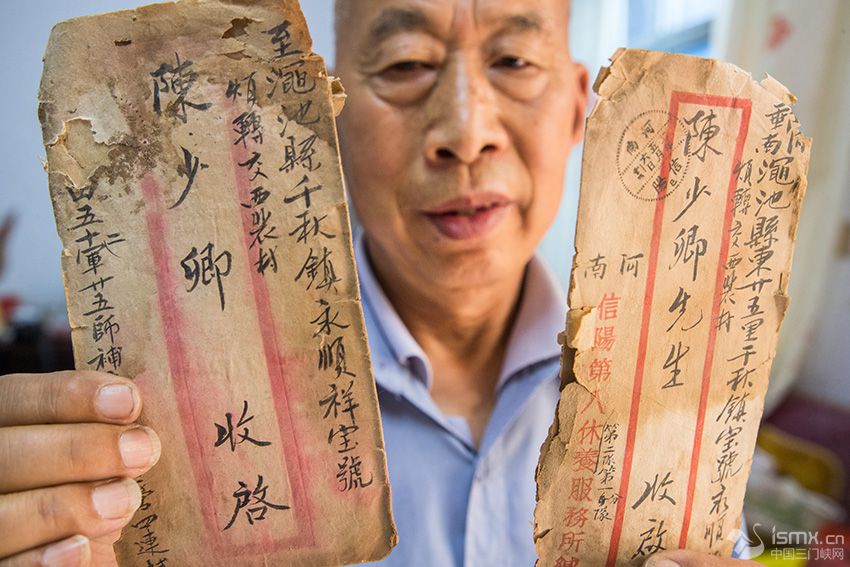 至澠池縣千秋鎮永順祥宝號
煩轉交西裴村
陳少卿 收啓
軍廿五師補
四連
澠池縣東廿五里千秋鎮宝號永順
煩轉交西裴村
陳少卿先生 收啟
河南
信陽第八休養服務所
第二隊第一分隊
ismx.cn
中国三门峡网